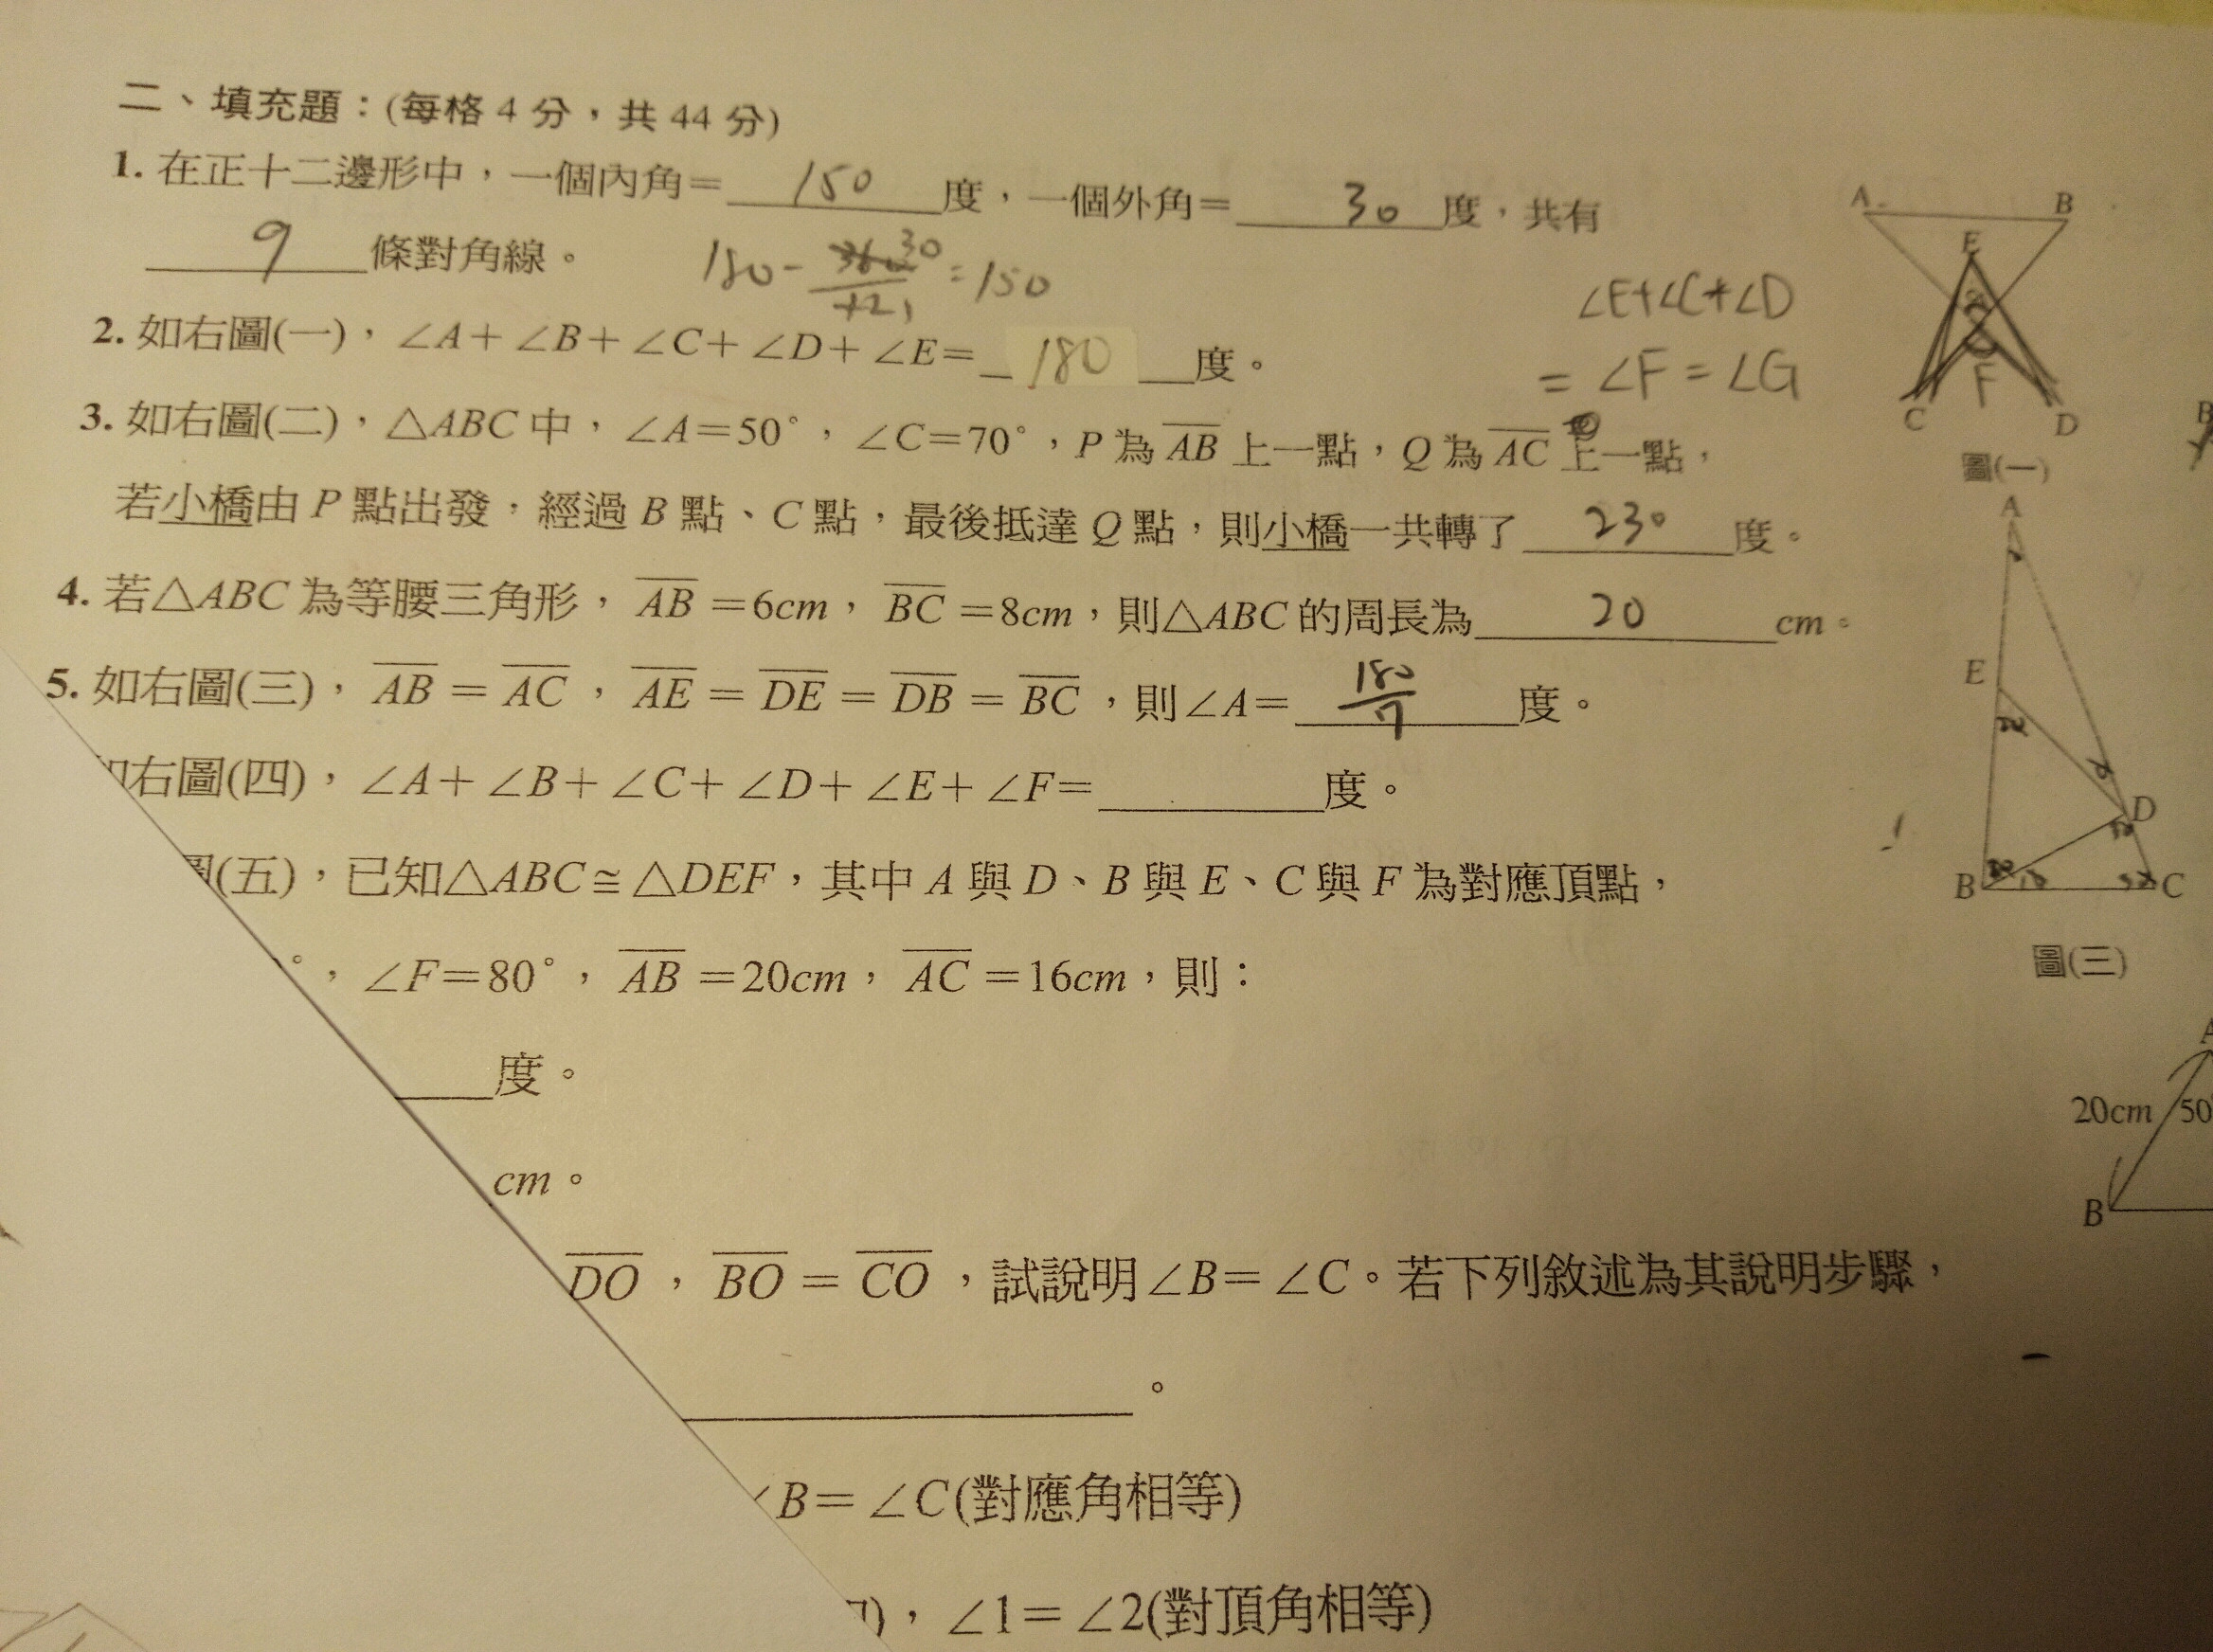 二、填充題：(每格 4 分，共 44 分)
1. 在正十二邊形中，一個內角＝ 150 度，一個外角＝ 30 度，共有
9 條對角線。
180 - 360 30 / 12 1 = 150
2. 如右圖(一)，∠A＋∠B＋∠C＋∠D＋∠E＝ 180 度。
∠E+∠C+∠D
= ∠F = ∠G
3. 如右圖(二)，△ABC 中，∠A＝50°，∠C＝70°，P 為 AB 上一點，Q 為 AC 上一點，
若小橋由 P 點出發，經過 B 點、C 點，最後抵達 Q 點，則小橋一共轉了 230 度。
4. 若△ABC 為等腰三角形，AB＝6cm，BC＝8cm，則△ABC 的周長為 20 cm。
5. 如右圖(三)，AB＝AC，AE＝DE＝DB＝BC，則∠A＝ 180/7 度。
右圖(四)，∠A＋∠B＋∠C＋∠D＋∠E＋∠F＝ 度。
(五)，已知△ABC≅△DEF，其中 A 與 D、B 與 E、C 與 F 為對應頂點，
°，∠F＝80°，AB＝20cm，AC＝16cm，則：
度。
cm。
DO，BO＝CO，試說明∠B＝∠C。若下列敘述為其說明步驟，
。
∠B＝∠C(對應角相等)
)，∠1＝∠2(對頂角相等)
A B
E
F
C D
圖(一)
B
A
E
D
B C
圖(三)
A
20cm 50
B